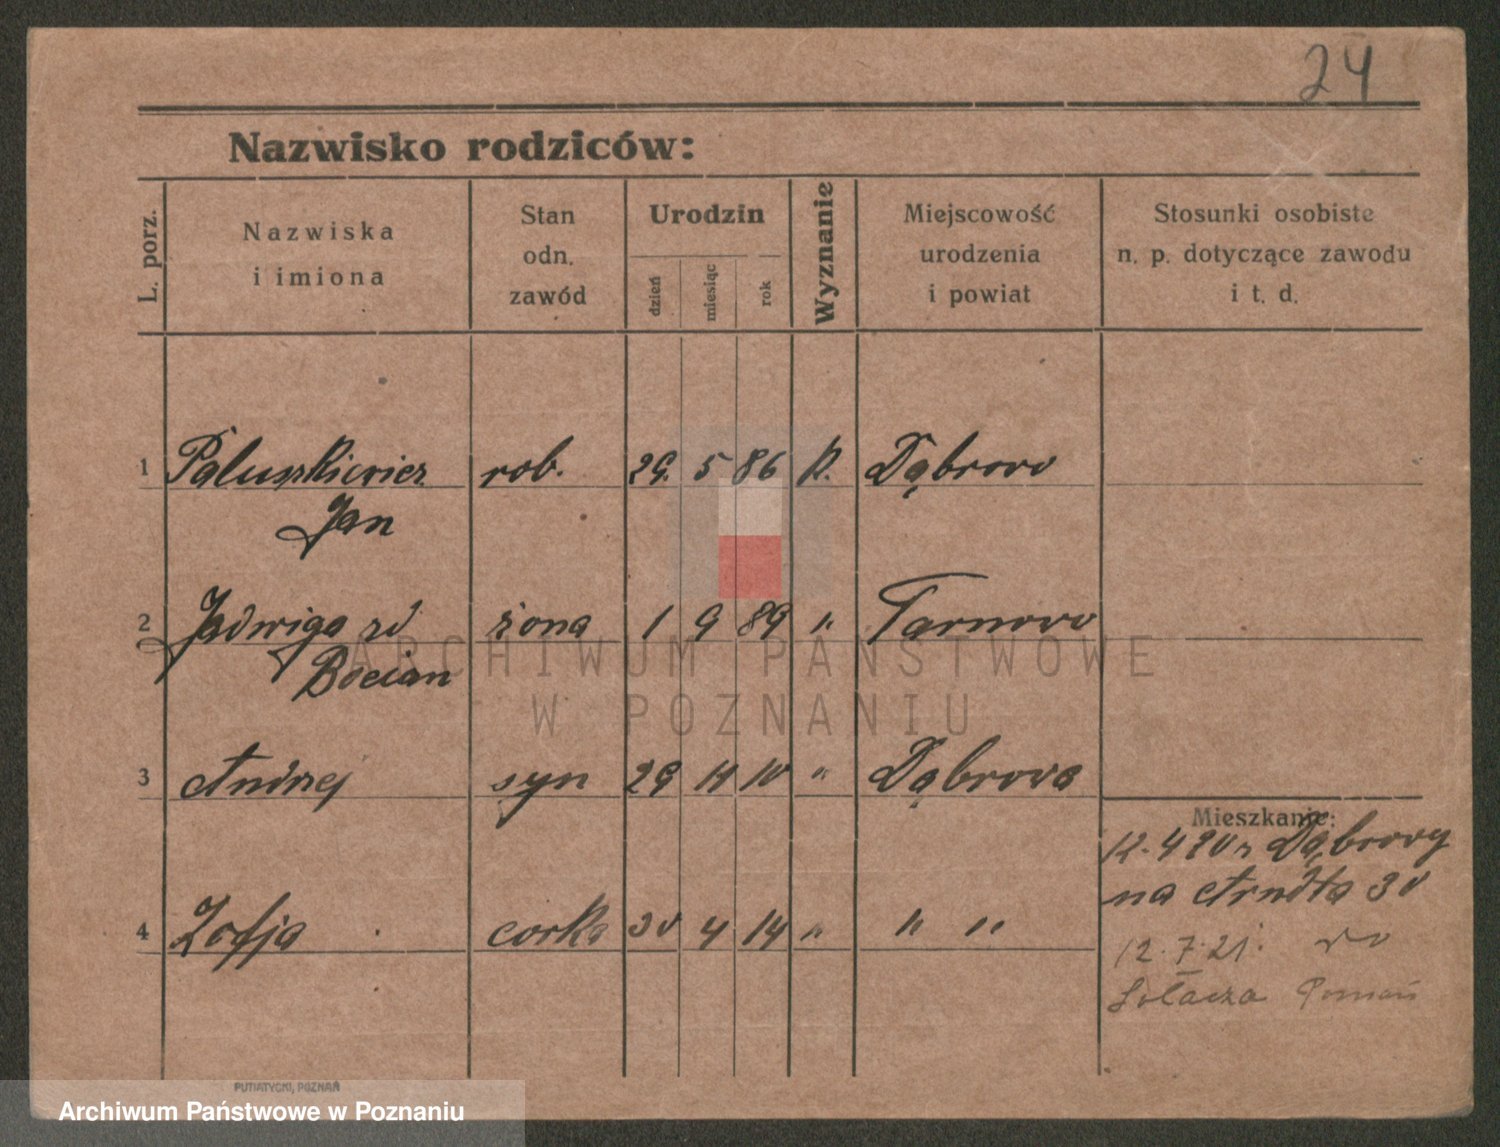 24
Nazwisko rodziców:
L. porz.
Nazwiska
i imiona
Stan
odn.
zawód
Urodzin
dzień
miesiąc
rok
Wyznanie
Miejscowość
urodzenia
i powiat
Stosunki osobiste
n. p. dotyczące zawodu
i t. d.
1 Paluszkiewicz rob. 29. 5 86 k. Dąbrowo
Jan
2 Jadwiga zd żona 1 9 89 " Tarnowo
Bocian
3 Andrzej syn 29 11 10 " Dąbrowa
4 Zofja corka 30 4 14 " " "
Mieszkanie:
12.4 20 z Dąbrowy
na Arndta 30
12.7.21. do
Sołacza Poznań
PUTIATYCKI, POZNAŃ
ARCHIWUM PAŃSTWOWE
W POZNANIU
Archiwum Państwowe w Poznaniu